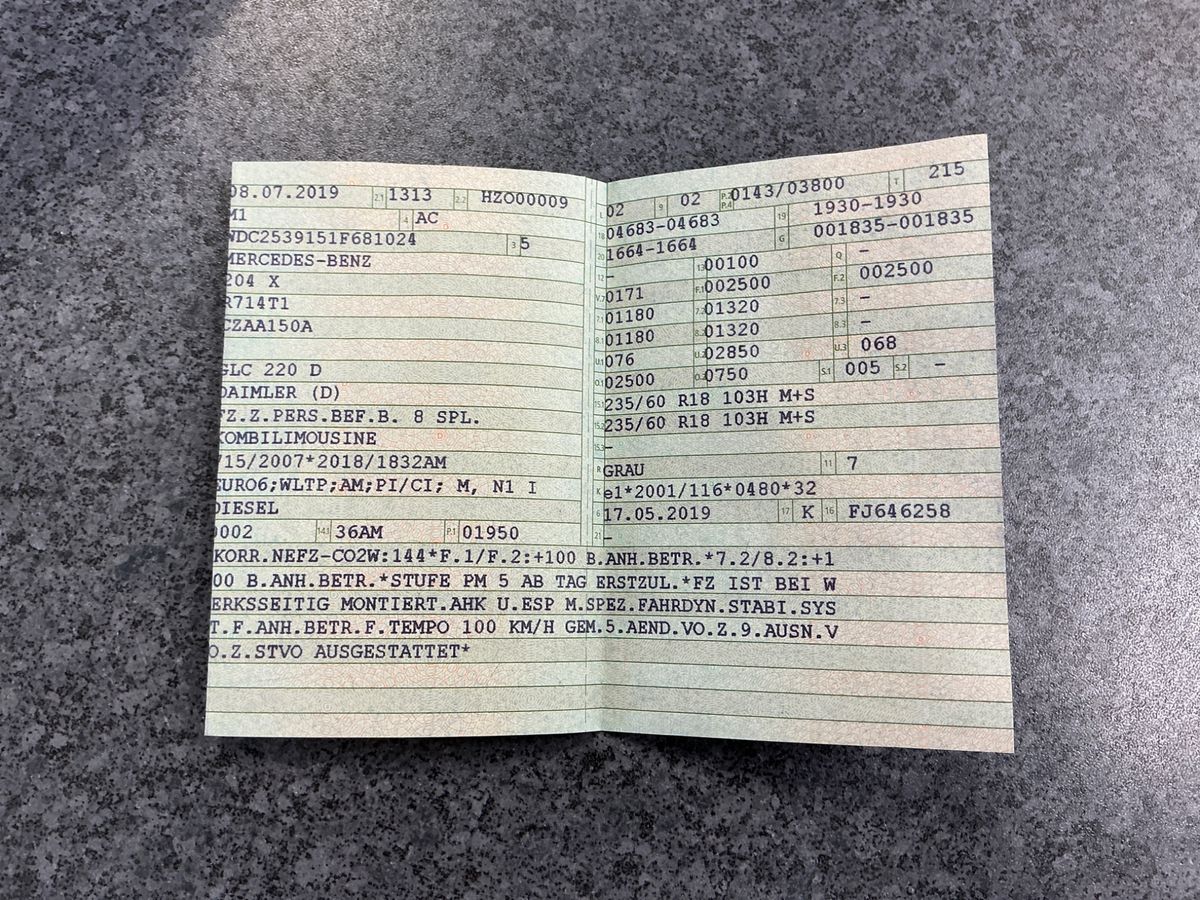 08.07.2019 2.1 1313 2.2 HZO00009
M1 4 AC
WDC2539151F681024 3 5
MERCEDES-BENZ
204 X
R714T1
CZAA150A
GLC 220 D
DAIMLER (D)
FZ.Z.PERS.BEF.B. 8 SPL.
KOMBILIMOUSINE
715/2007*2018/1832AM
EURO6;WLTP;AM;PI/CI; M, N1 I
DIESEL
0002 14.1 36AM P.1 01950
L 02 9 02 P.2 P.4 0143/03800 T 215
18 04683-04683 19 1930-1930
20 1664-1664 G 001835-001835
12 - 13 00100 Q -
V.7 0171 F.1 002500 F.2 002500
7.1 01180 7.2 01320 7.3 -
8.1 01180 8.2 01320 8.3 -
U.1 076 U.2 02850 U.3 068
O.1 02500 O.2 0750 S.1 005 S.2 -
15.1 235/60 R18 103H M+S
15.2 235/60 R18 103H M+S
15.3 -
R GRAU 11 7
K e1*2001/116*0480*32
6 17.05.2019 17 K 16 FJ646258
21 -
KORR.NEFZ-CO2W:144*F.1/F.2:+100 B.ANH.BETR.*7.2/8.2:+1
00 B.ANH.BETR.*STUFE PM 5 AB TAG ERSTZUL.*FZ IST BEI W
ERKSSEITIG MONTIERT.AHK U.ESP M.SPEZ.FAHRDYN.STABI.SYS
T.F.ANH.BETR.F.TEMPO 100 KM/H GEM.5.AEND.VO.Z.9.AUSN.V
O.Z.STVO AUSGESTATTET*